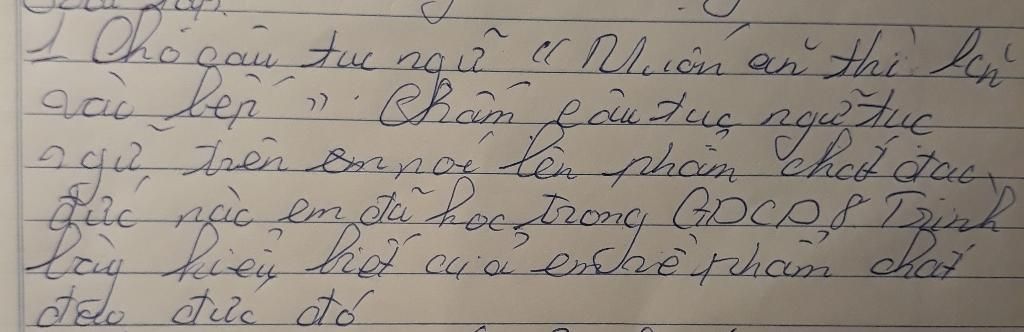 1 Cho câu tục ngữ " Muốn ăn thì lăn
vào bếp ". Châm câu tục ngữ tục
ngữ trên em nói lên phẩm chất đạo
đức nào em đã học trong GDCD 8 Trình
bày hiểu biết của em về phẩm chất
đạo đức đó